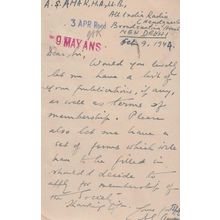 A. S. AMAR, M.A., LL.B.,
All India Radio
Broadcasting House
NEW DELHI
3 APR Recd
9 MAY ANS
Dear Sir,
Would you kindly
let me have a list of
your publications, if any,
as well as terms of
membership. Please
also let me have a
set of forms which have
to be filled in
should I decide to
apply for membership
of the Society.
Thanking you,